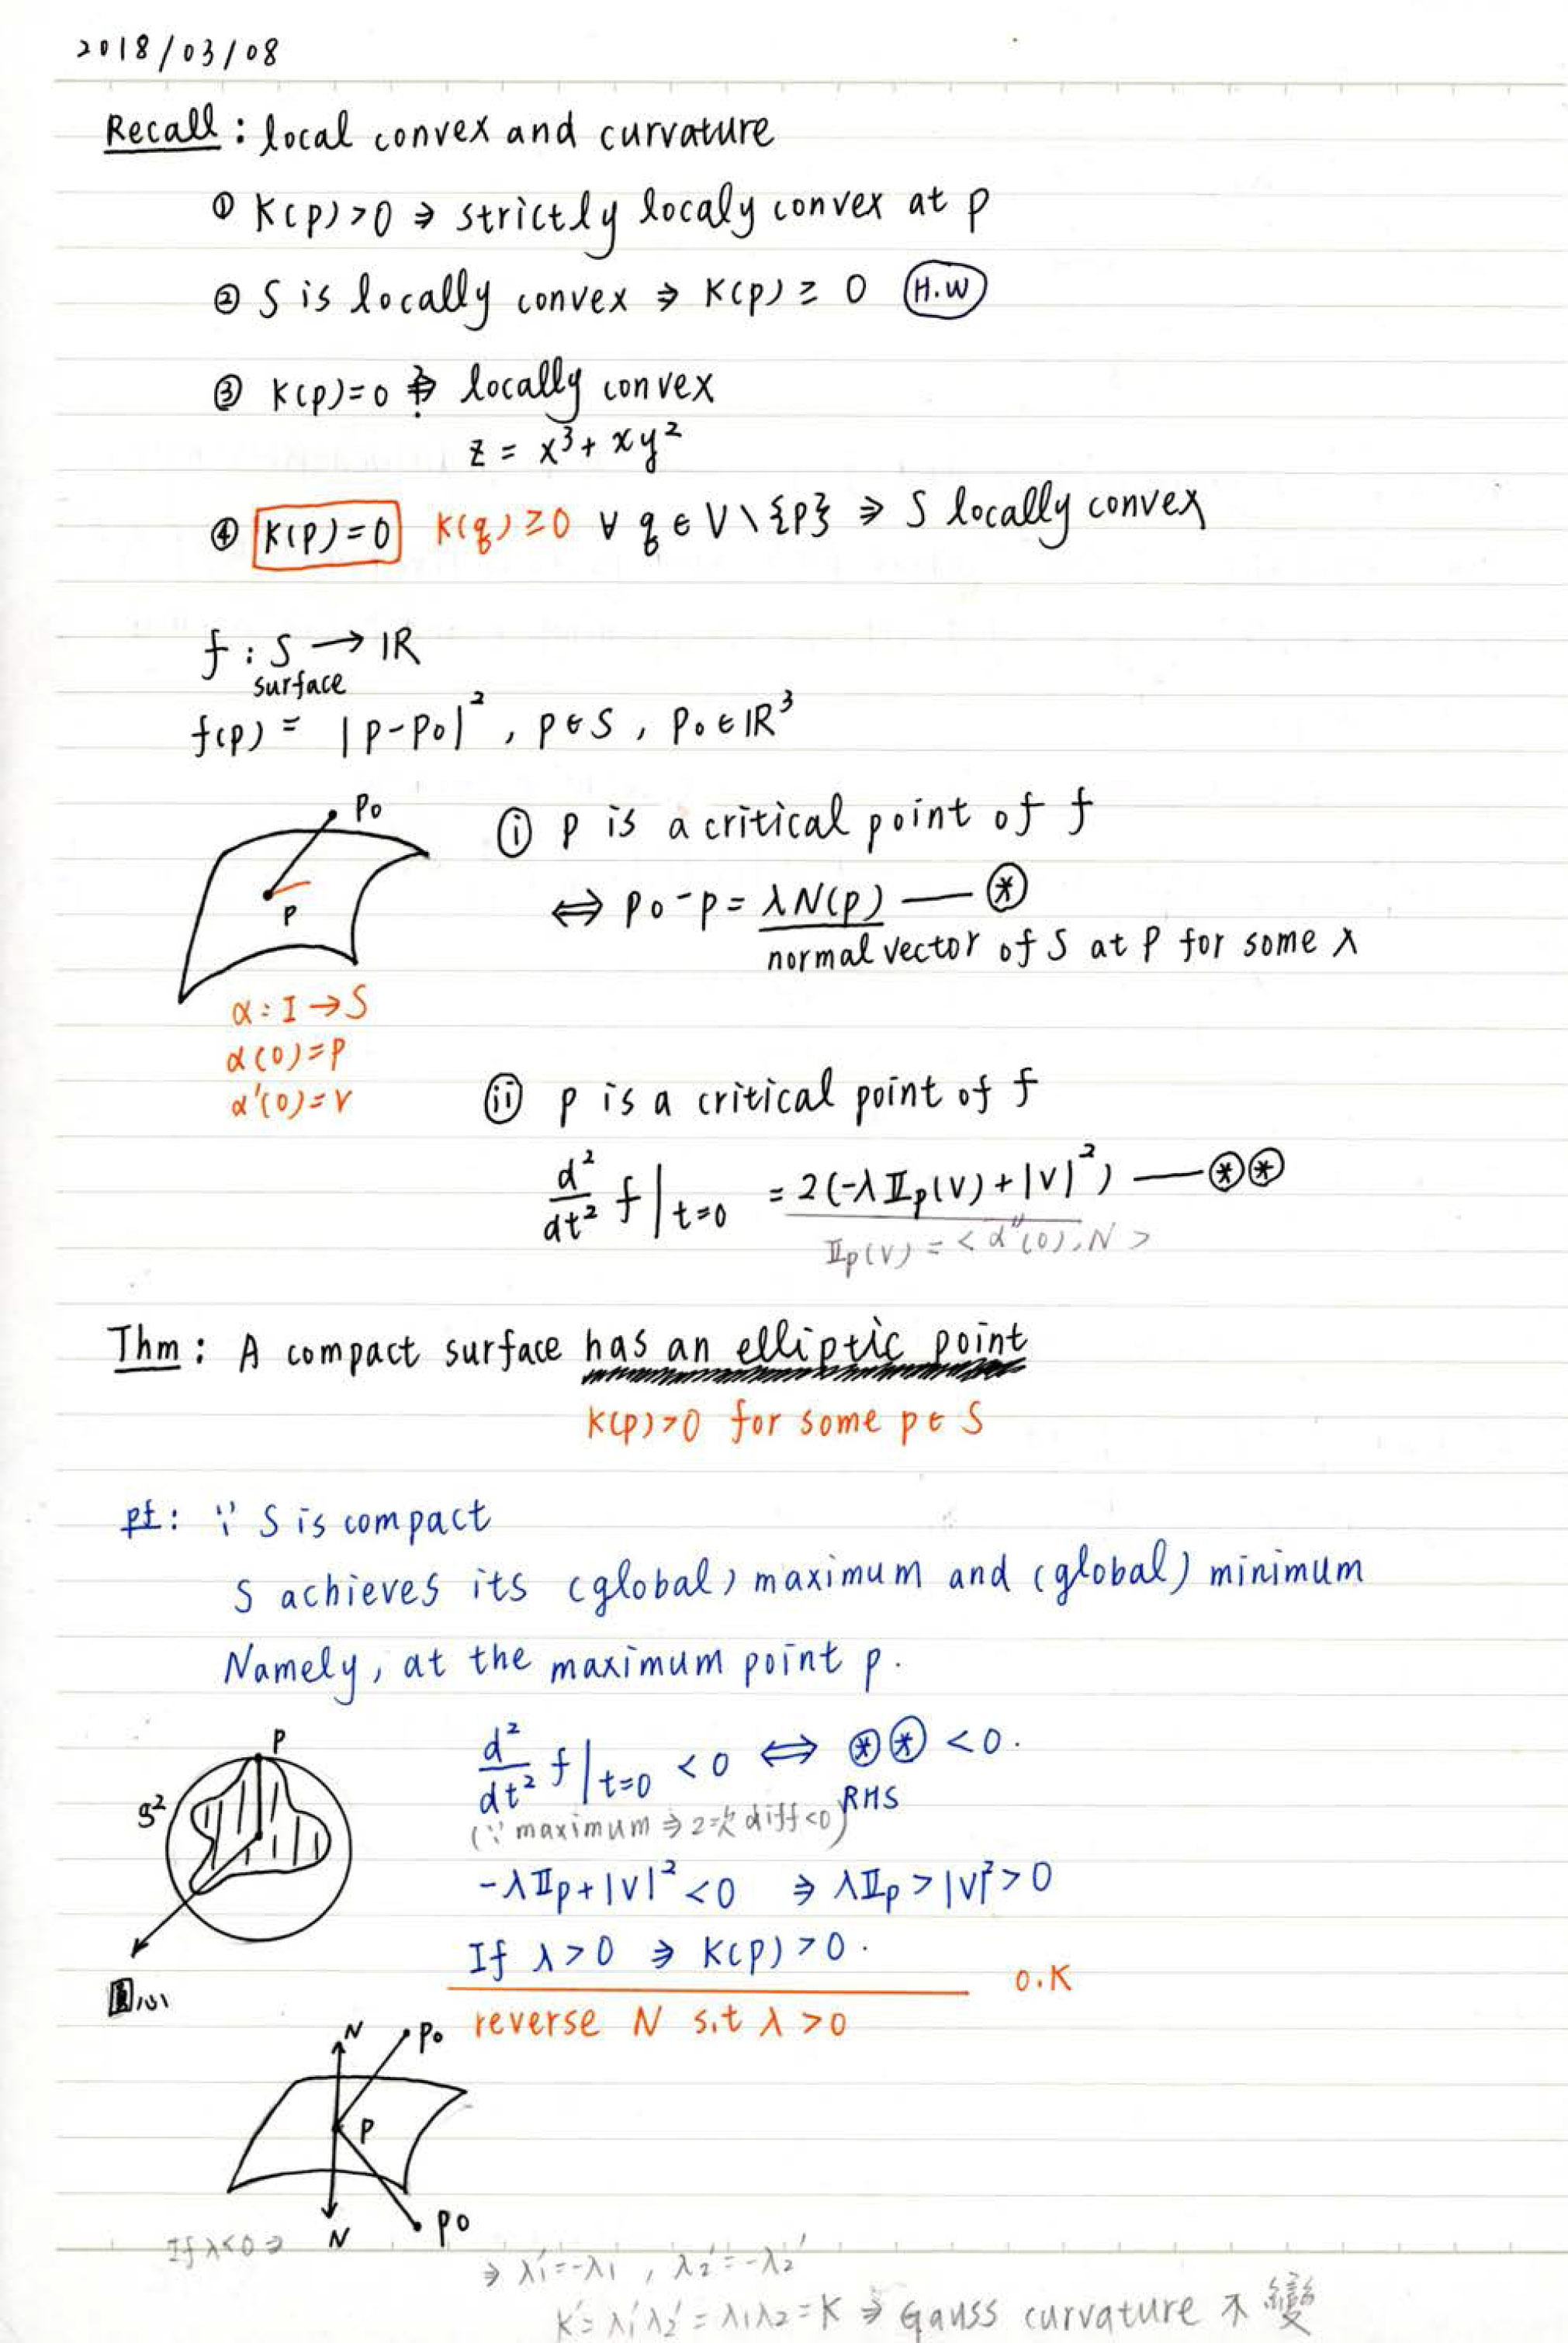 2018/03/08
Recall : local convex and curvature
① K(p)>0 ⇒ strictly localy convex at p
② S is locally convex ⇒ K(p) ≥ 0 (H.W)
③ K(p)=0 ⇏ locally convex
z = x³ + xy²
④ K(p)=0 K(q)≥0 ∀ q ∈ V \ {p} ⇒ S locally convex
f : S → ℝ
surface
f(p) = |p-p₀|², p∈S, p₀∈ℝ³
p₀
p
α : I → S
α(0)=p
α'(0)=v
ⓘ p is a critical point of f
⇔ p₀-p = λN(p) — ⊛
normal vector of S at p for some λ
ⓘⓘ p is a critical point of f
d²/dt² f|t=0 = 2(-λⅡp(v)+|v|²) — ⊛⊛
Ⅱp(v) = <α''(0), N>
Thm : A compact surface has an elliptic point
K(p)>0 for some p∈S
pf : ∵ S is compact
S achieves its (global) maximum and (global) minimum
Namely, at the maximum point p.
p
S²
圓心
d²/dt² f|t=0 < 0 ⇔ ⊛⊛ < 0.
RHS
(∵ maximum ⇒ 2次diff<0)
-λⅡp+|v|²<0 ⇒ λⅡp>|v|²>0
If λ>0 ⇒ K(p)>0.
O.K
reverse N s.t λ>0
N
p₀
p
N
p₀
If λ<0 ⇒
⇒ λ₁'=-λ₁, λ₂'=-λ₂
K'=λ₁'λ₂'=λ₁λ₂=K ⇒ Gauss curvature 不變